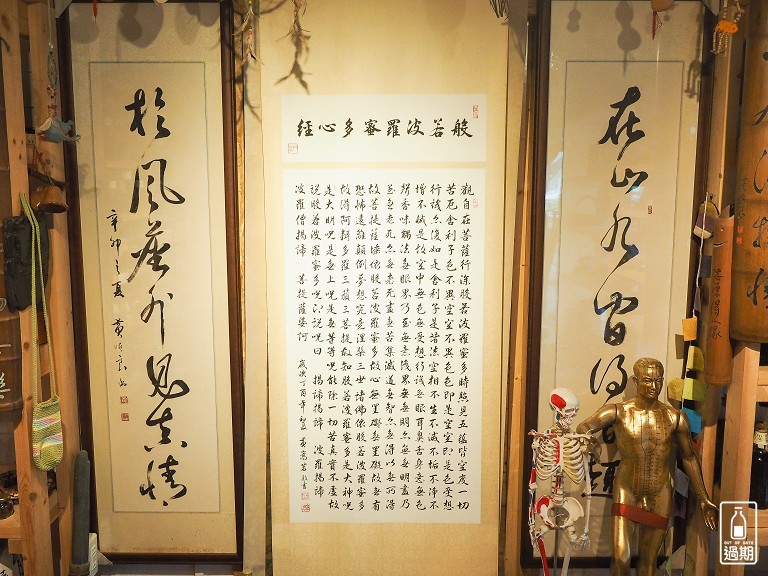 在山水間得
趣
般若波羅蜜多心經
觀自在菩薩行深般若波羅蜜多時照見五蘊皆空度一切
苦厄舍利子色不異空空不異色色即是空空即是色受想
行識亦復如是舍利子是諸法空相不生不滅不垢不淨不
增不減是故空中無色無受想行識無眼耳鼻舌身意無色
聲香味觸法無眼界乃至無意識界無無明亦無無明盡乃
至無老死亦無老死盡無苦集滅道無智亦無得以無所得
故菩提薩埵依般若波羅蜜多故心無罣礙無罣礙故無有
恐怖遠離顛倒夢想究竟涅槃三世諸佛依般若波羅蜜多
故得阿耨多羅三藐三菩提故知般若波羅蜜多是大神咒
是大明咒是無上咒是無等等咒能除一切苦真實不虛故
說般若波羅蜜多咒即說咒曰 揭諦揭諦 波羅揭諦
波羅僧揭諦 菩提薩婆訶 歲次丁酉年
於風塵外見真情
辛卯之夏 黃
OUT OF DATE
過期